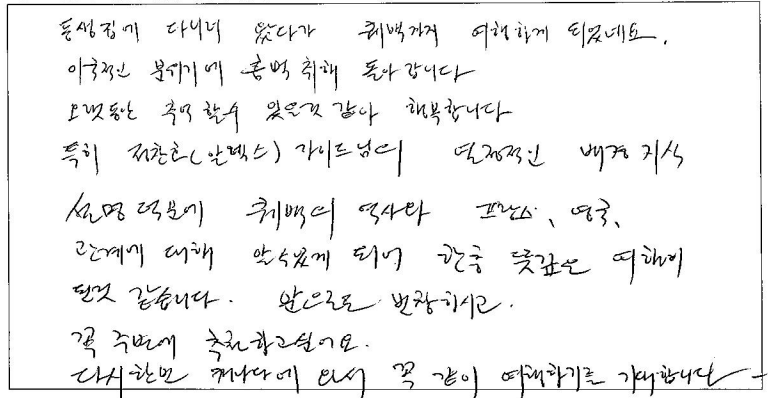 동생집에 다니러 왔다가 퀘백까지 여행하게 되었네요.
이국적인 분위기에 흠벅 취해 돌아 갑니다
오랫동안 추억 할수 있을것 같아 행복합니다
특히 전찬호(알렉스) 가이드님의 열정적인 배경지식
설명 덕분에 퀘백의 역사와 프랑스, 영국,
관계에 대해 알수있게 되어 한층 뜻깊은 여행이
된것 같습니다. 앞으로도 번창하시고.
꼭 주변에 추천하고싶어요.
다시한번 캐나다에 와서 꼭 같이 여행하기를 기대합니다